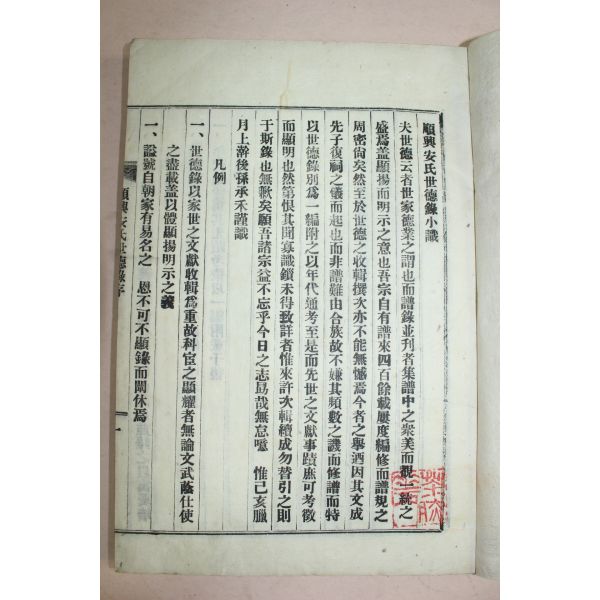 順興安氏世德錄小識
夫世德云者世家德業之謂也而譜錄並刋者集譜中之衆美而觀一統之
盛焉盖顯揚而明示之意也吾宗自有譜來四百餘載屢度編修而譜規之
周密尙矣然至於世德之收輯撰次亦不能無憾焉今者之擧洒因其文成
先子復祠之儀而起也而非譜難由合族故不嫌其頻數之譏而修譜而特
以世德錄別爲一編附之以年代通考至是而先世之文獻事蹟庶可考徵
而顯明也然第恨其聞寡識鎖未得致詳者惟來許次輯續成勿替引之則
于斯錄也無歉矣願吾諸宗益不忘乎今日之志勗哉無怠噫 惟己亥臘
月上澣後孫承禾謹識
凡例
一、世德錄以家世之文獻收輯爲重故科宦之顯耀者無論文武蔭仕使
之盡載盖以體顯揚明示之義
一、諡號自朝家有易名之 恩不可不顯錄而闡休焉
順興安氏世德錄序
一